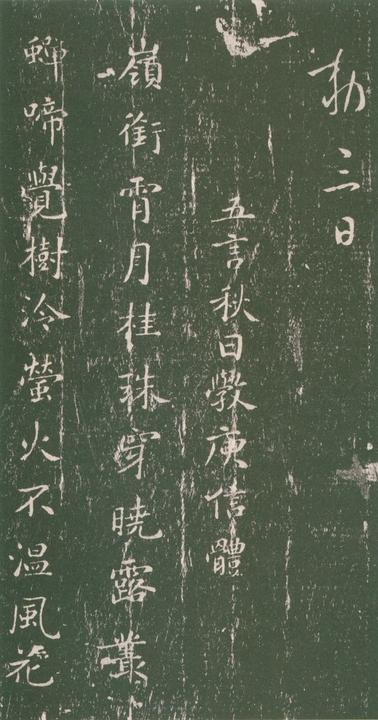 勑三日
五言秋日斆庾信體
嶺銜霄月桂珠穿曉露叢
蟬啼覺樹冷螢火不溫風花